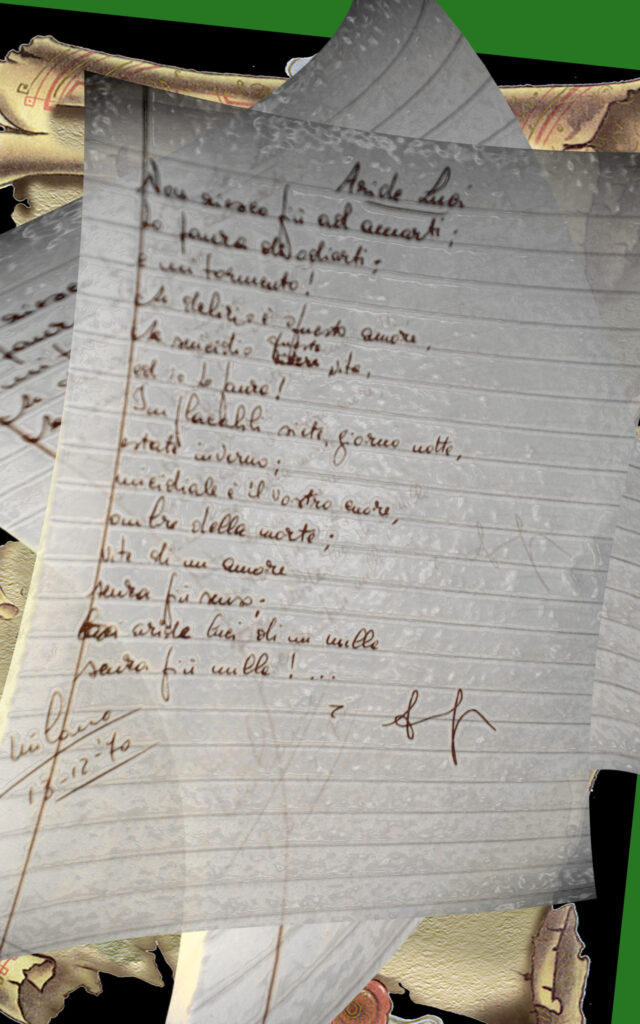 Aride Luci
Non riesco più ad amarti;
ho paura di odiarti;
è un tormento!
Se delirio è questo amore,
se suicidio questa vita,
ed io ho paura!
Implacabili siete, giorno notte,
estate inverno;
micidiale è il vostro amore,
ombre della morte;
vite di un amore
senza più senso;
aride luci di un nulla
senza più nulla! ...
Milano
13-12-70